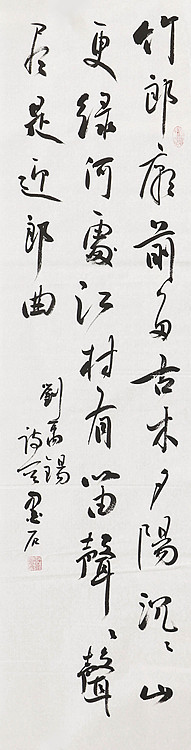 竹郎廟前多古木夕陽沉々山
更綠何處江村有笛聲々聲
尽是迎郎曲
劉禹錫
詩 墨石